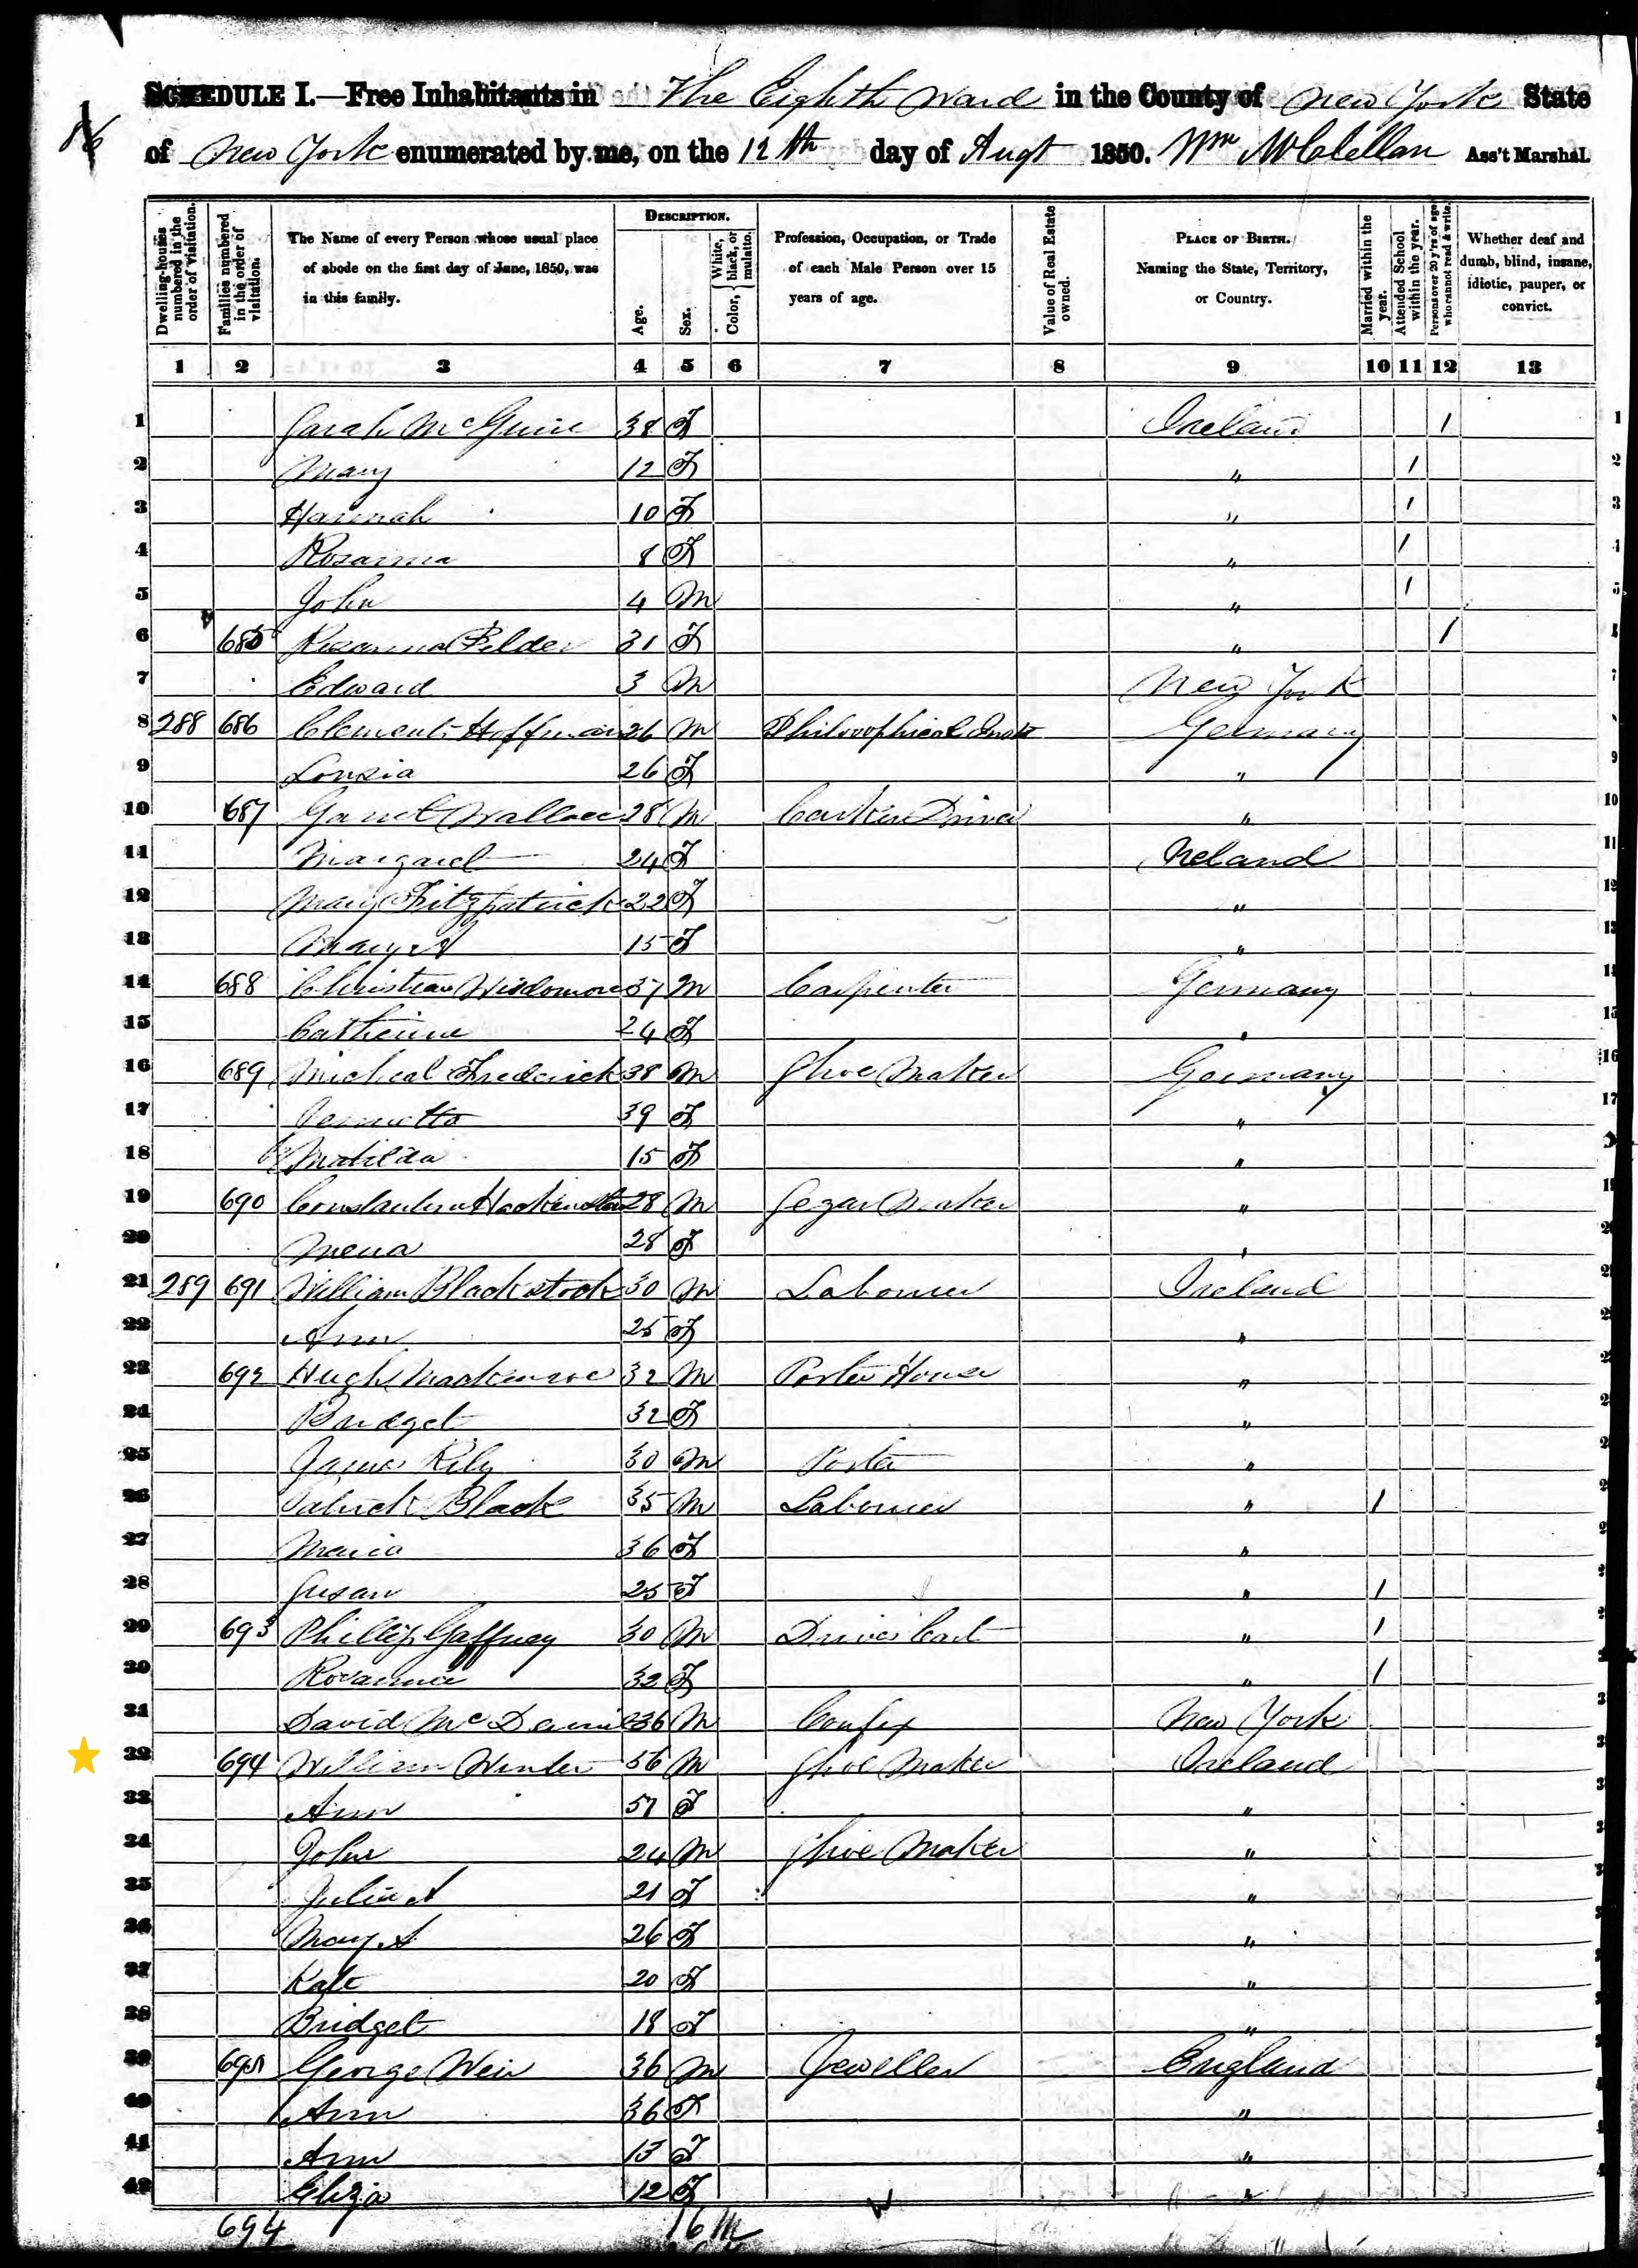 86
SCHEDULE I.—Free Inhabitants in The Eighth Ward in the County of New York State
of New York enumerated by me, on the 12th day of Augt 1850. Wm McClellan Ass't Marshal.
Dwelling-houses numbered in the order of visitation.
Families numbered in the order of visitation.
The Name of every Person whose usual place of abode on the first day of June, 1850, was in this family.
DESCRIPTION.
Age.
Sex.
Color, { White, black, or mulatto.
Profession, Occupation, or Trade of each Male Person over 15 years of age.
Value of Real Estate owned.
PLACE OF BIRTH. Naming the State, Territory, or Country.
Married within the year.
Attended School within the year.
Persons over 20 y'rs of age who cannot read & write.
Whether deaf and dumb, blind, insane, idiotic, pauper, or convict.
1 2 3 4 5 6 7 8 9 10 11 12 13
1 Sarah McGuire 38 F Ireland 1 1
2 Mary 12 F " 1 2
3 Hannah 10 F " 1 3
4 Rosanna 8 F " 1 4
5 John 4 M " 1 5
6 685 Rosanna Felder 31 F " 1
7 Edward 3 M New York 7
8 288 686 Clement Hoffman 26 M Philosophical Inst Germany
9 Louzia 26 F " 9
10 687 Garret Wallace 28 M Driver " 10
11 Margaret 24 F Ireland 11
12 Mary Fitzpatrick 22 F " 12
13 Mary A 15 F " 13
14 688 Christian Wisdomore 37 M Carpenter Germany 14
15 Catherine 24 F " 15
16 689 Micheal Frederick 38 M Shoe Maker Germany 16
17 39 F " 17
18 Matilda 15 F "
19 690 28 M Segar Maker "
20 Mena 28 F "
21 289 691 William Blackstock 30 M Labourer Ireland
22 Ann 25 F "
23 692 Hugh 32 M Porter House "
24 Bridget 32 F "
25 James Rily 30 M Porter "
26 Patrick Black 35 M Labourer " 1
27 Maria 36 F "
28 Susan 25 F " 1
29 693 Phillip Gaffney 30 M Drives Cart " 1
30 Rosanna 32 F " 1
31 David 36 M New York
32 694 William Winter 56 M Shoe Maker Ireland
33 Ann 57 F "
34 John 24 M Shoe Maker "
35 Julia A 21 F "
36 Mary A 26 F "
37 Kate 20 F "
38 Bridget 18 F "
39 695 George Weir 36 M Jeweller England
40 Ann 36 F "
41 Ann 13 F "
42 Eliza 12 F "
694 16 M